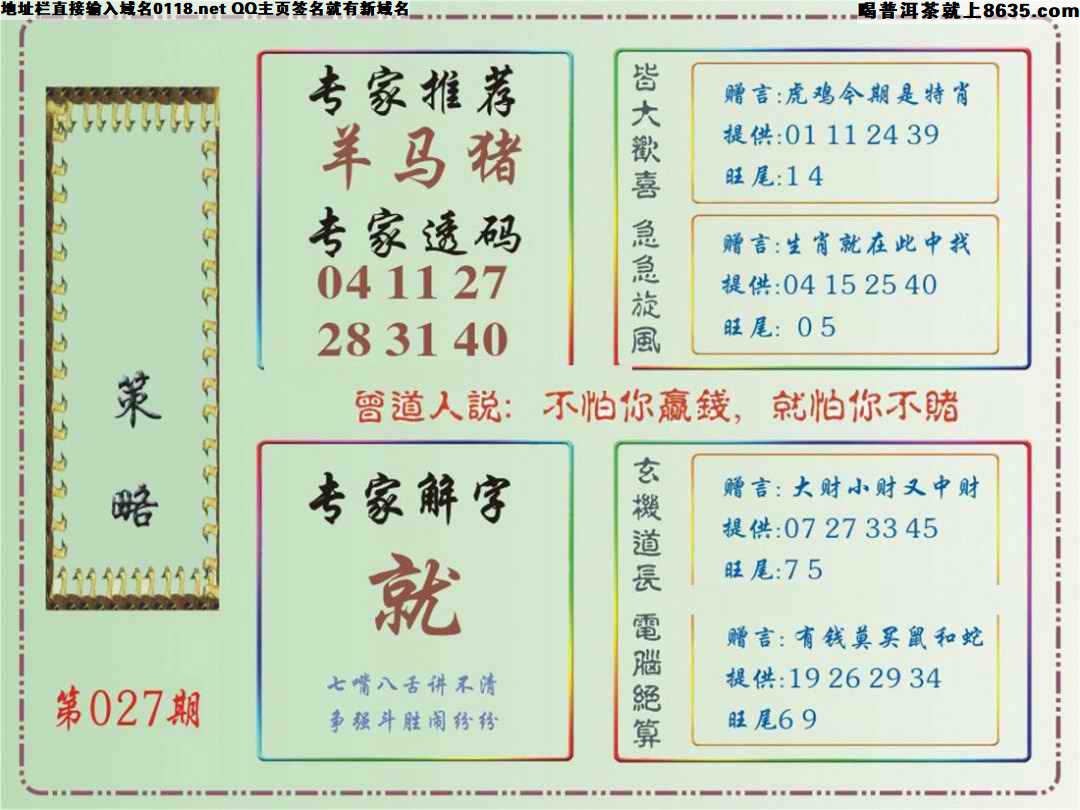 地址栏直接输入域名0118.net QQ主页签名就有新域名
喝普洱茶就上8635.com
策
略
第027期
专家推荐
羊马猪
专家透码
04 11 27
28 31 40
皆大歡喜
赠言:虎鸡今期是特肖
提供:01 11 24 39
旺尾:1 4
急急旋風
赠言:生肖就在此中找
提供:04 15 25 40
旺尾: 0 5
曾道人説: 不怕你贏錢, 就怕你不賭
专家解字
就
七嘴八舌讲不清
争强斗胜闹纷纷
玄機道長
赠言: 大财小财又中财
提供:07 27 33 45
旺尾:7 5
電腦絕算
赠言: 有钱莫买鼠和蛇
提供:19 26 29 34
旺尾6 9